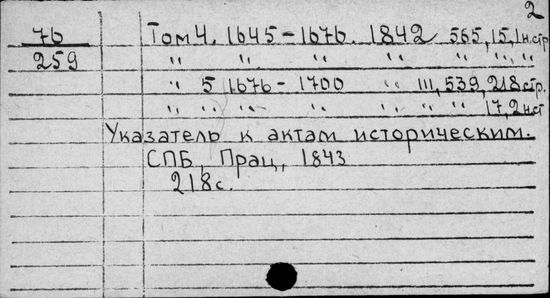 2
76 Том 4. 1645 – 1676. 1842 565, 15, 1 н.стр
259 " " " " " " " "
" 5 1676 – 1700 " III, 539, 218 стр.
" " " " " " " 17, 2 н.ст
Указатель к актам историческим.
СПБ, Прац, 1843
218 с.